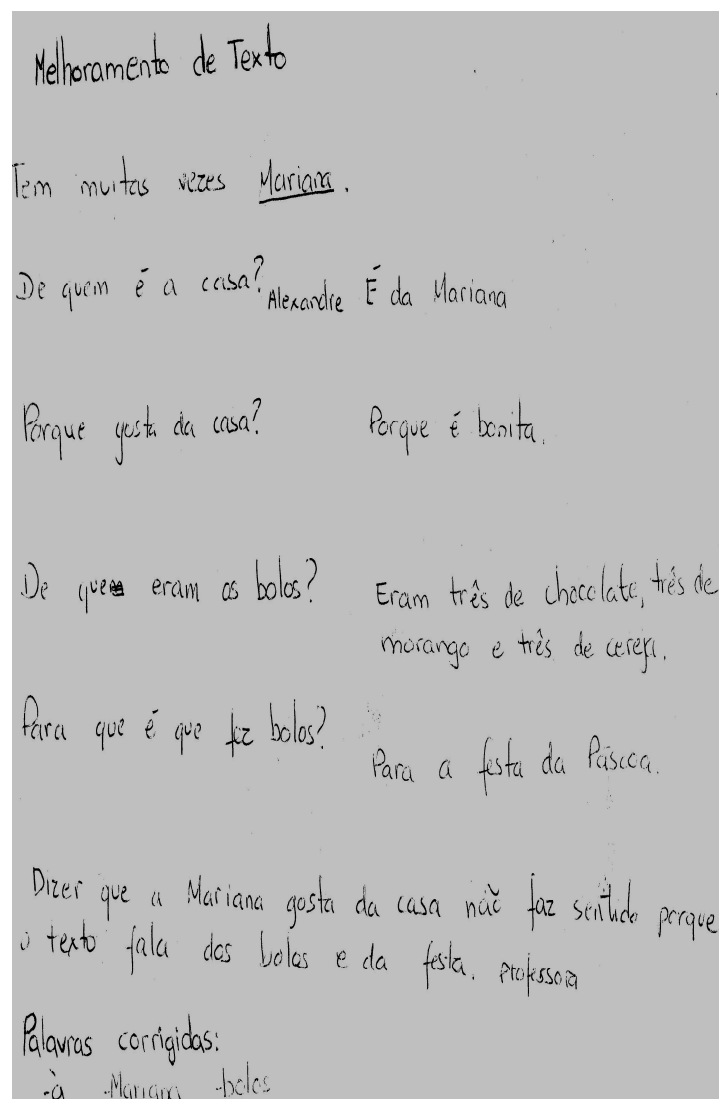 Melhoramento de Texto
Tem muitas vezes Mariana.
De quem é a casa? Alexandre É da Mariana
Porque gosta da casa? Porque é bonita.
De que eram os bolos? Eram três de chocolate, três de
morango e três de cereja.
Para que é que fez bolos?
Para a festa da Páscoa.
Dizer que a Mariana gosta da casa não faz sentido porque
o texto fala dos bolos e da festa. professora
Palavras corrigidas:
-à -Mariana -bolos